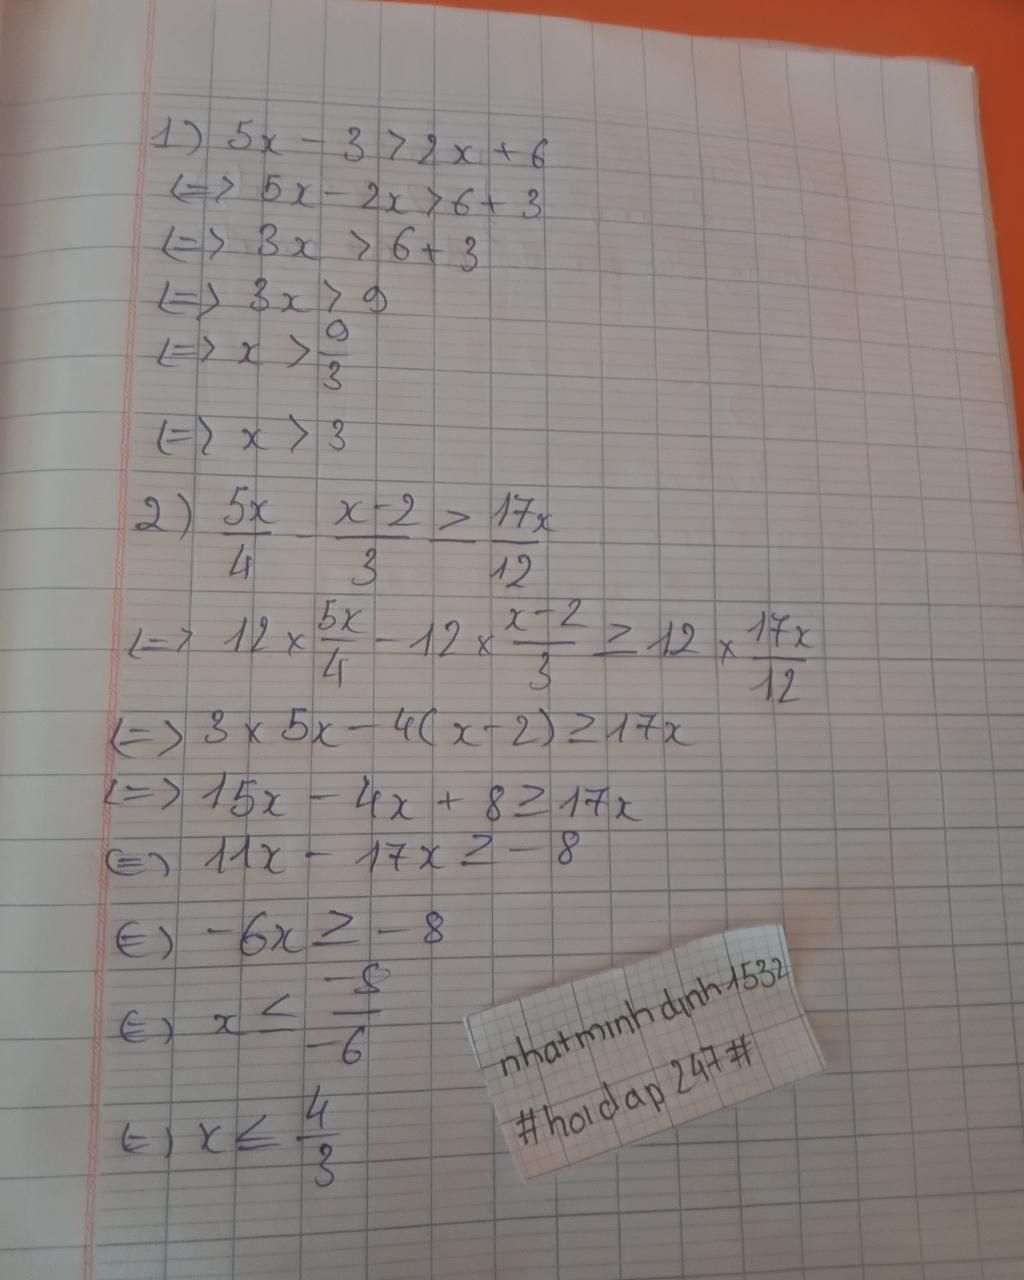 1) 5x - 3 > 2x + 6
<=> 5x - 2x > 6 + 3
<=> 3x > 6 + 3
<=> 3x > 9
<=> x > 9/3
<=> x > 3
2) 5x/4 - x-2/3 ≥ 17x/12
<=> 12 × 5x/4 - 12 × x-2/3 ≥ 12 × 17x/12
<=> 3 × 5x - 4(x-2) ≥ 17x
<=> 15x - 4x + 8 ≥ 17x
<=> 11x - 17x ≥ -8
<=> -6x ≥ -8
<=> x ≤ -8/-6
<=> x ≤ 4/3
nhatminhdinh1532
#hoidap247#